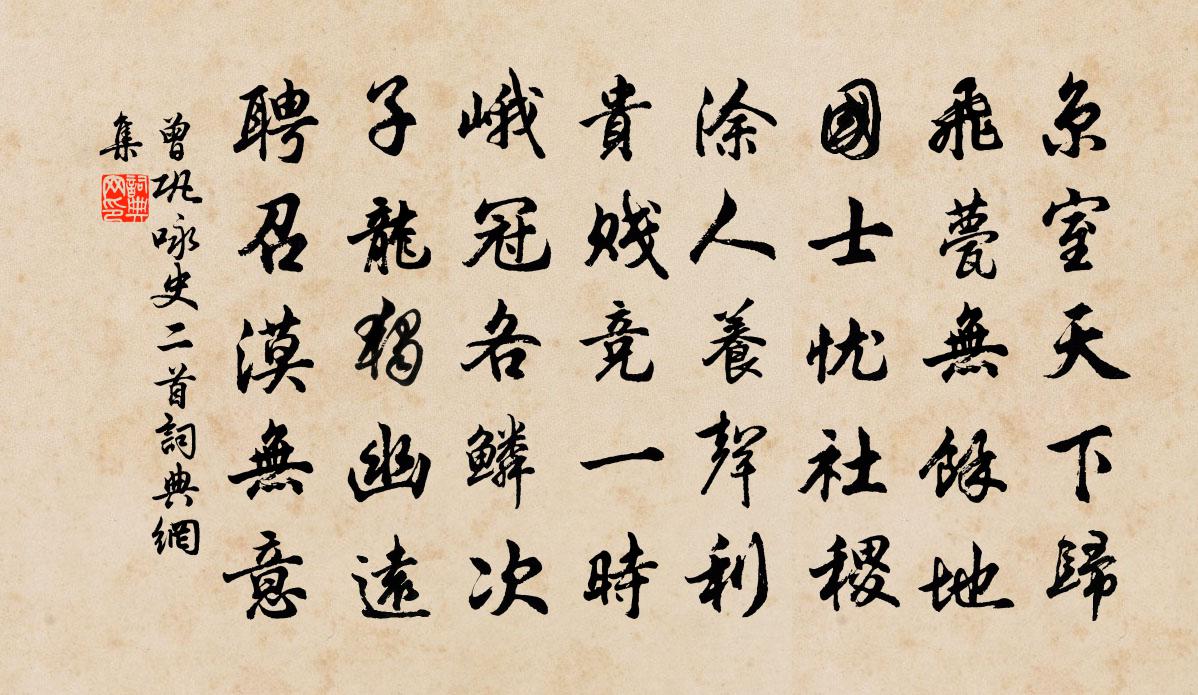 京室天下歸
飛甍無餘地
國士忧社稷
涂人養聲利
貴賤竞一時
峨冠各鱗次
子龍獨幽遠
聘召漠無意
曾巩咏史二首詞典網
集
詞典
网印